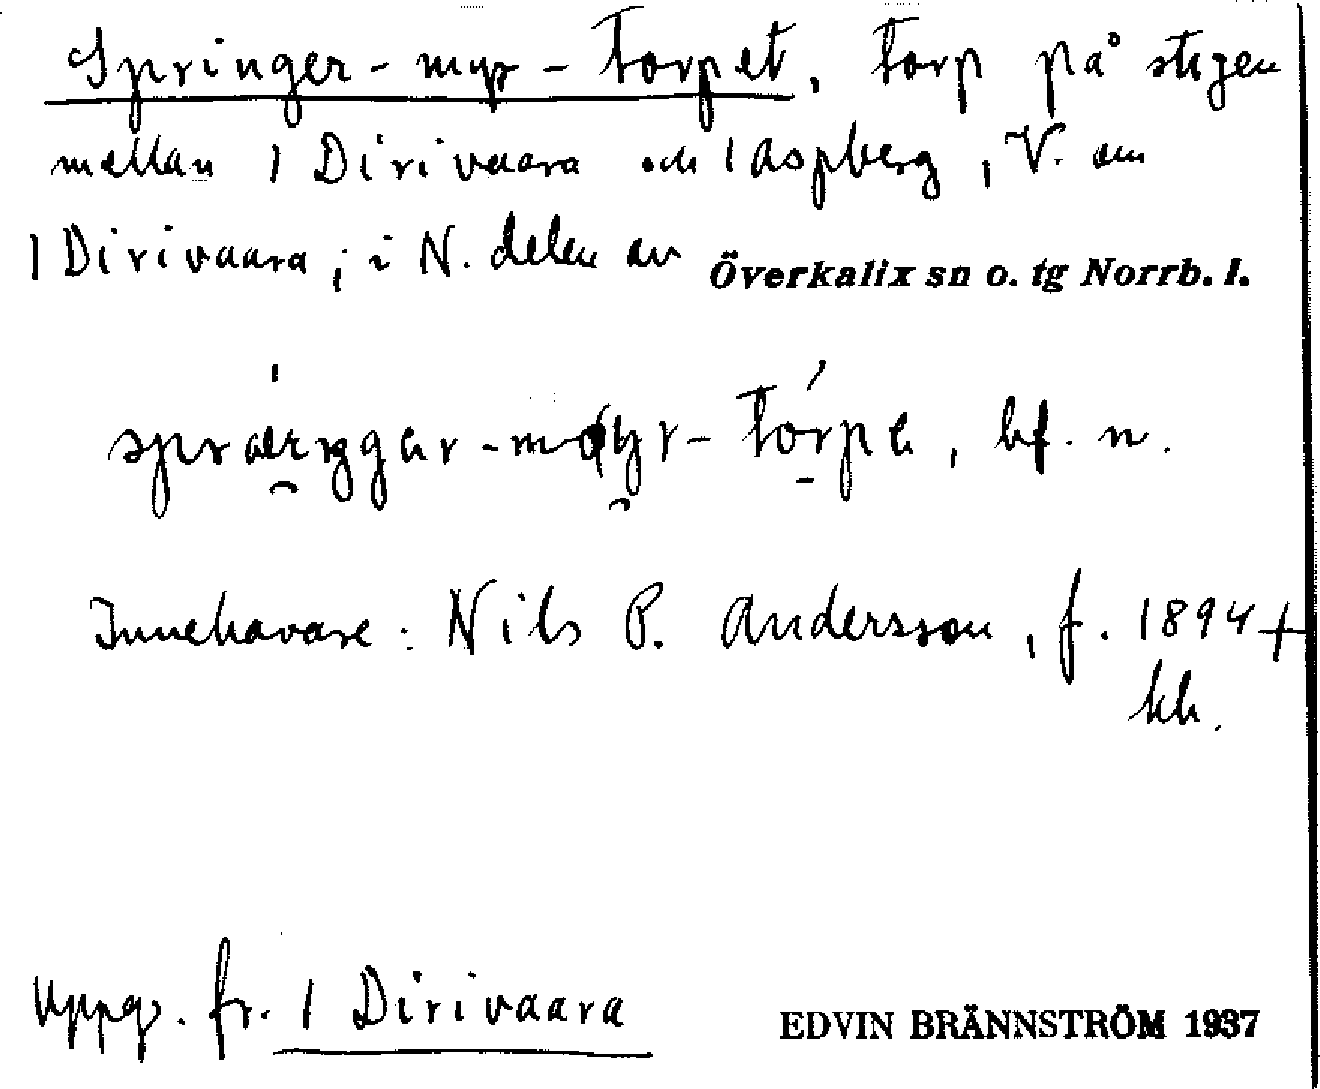 Springer-myr-torpet, torp på stigen
mellan 1 Dirivaara och 1 Aspberg, V. om
1 Dirivaara, i N. delen av Överkalix sn o. tg Norrb. l.
bf. n.
Innehavare: Nils P. Andersson, f. 1894 +
kh.
Uppg. fr. 1 Dirivaara
EDVIN BRÄNNSTRÖM 1937